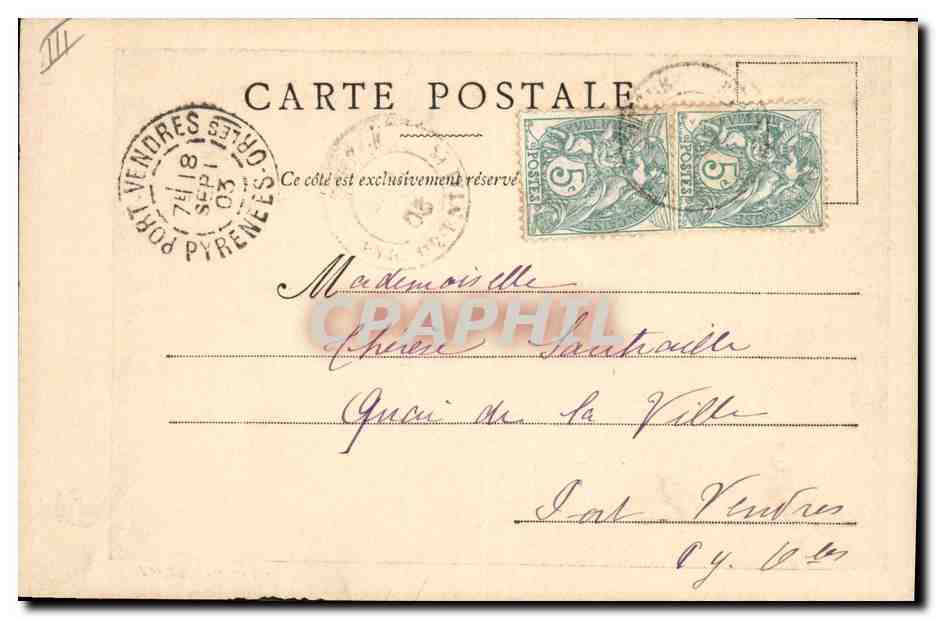 III
CARTE POSTALE
PORT-VENDRES
PYRENÉES-ORLES
7E 18
SEPT
03
03
Ce côté est exclusivement réservé
5c
POSTES
5c
POSTES
Mademoiselle
CPAPHIL
Thérèse Santraille
Quai de la Ville
Port Vendres
Py. Oles